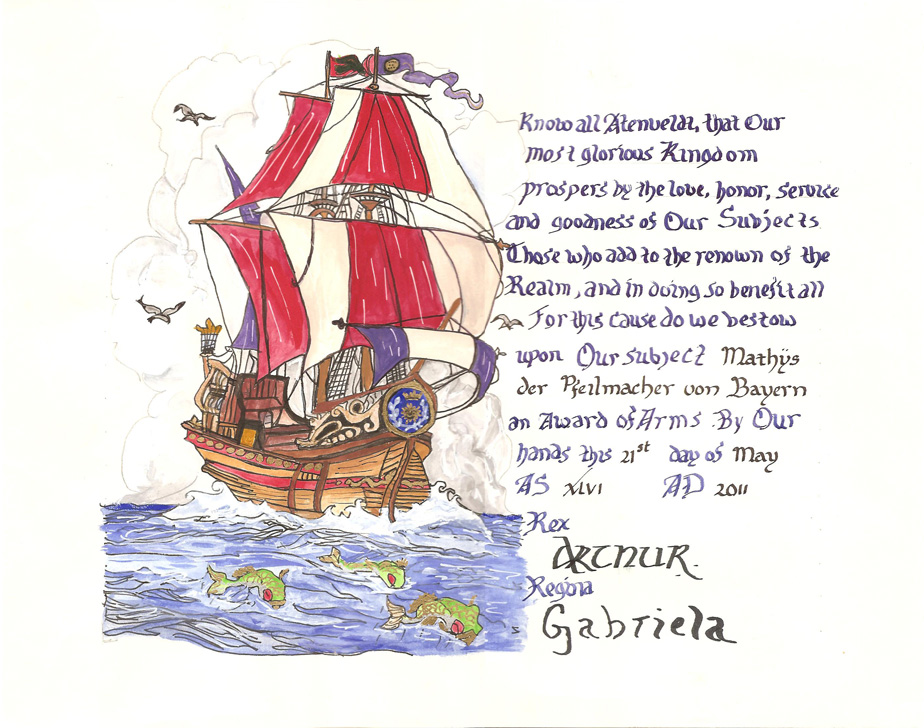 Know all Atenveldt, that Our
most glorious Kingdom
prospers by the love, honor, service
and goodness of Our Subjects
Those who add to the renown of the
Realm, and in doing so benefit all
For this cause do we bestow
upon Our subject Mathÿs
der Pfeilmacher von Bayern
an Award of Arms By Our
hands this 21st day of May
AS XLVI AD 2011
Rex
Arthur
Regina
Gabriela